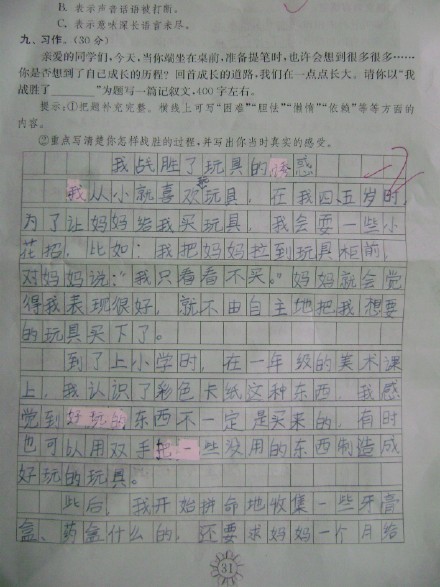 B. 表示声音话语被打断。
C. 表示意味深长语言未尽。
九、习作。(30分)
亲爱的同学们,今天,当你端坐在桌前,准备提笔时,也许会想到很多很多……
你是否想到了自己成长的历程?回首成长的道路,我们在一点点长大。请你以“我
战胜了______”为题写一篇记叙文,400字左右。
提示:①把题补充完整。横线上可写“困难”“胆怯”“懒惰”“依赖”等等方面的
内容。
②重点写清楚你怎样战胜的过程,并写出你当时真实的感受。
我战胜了玩具的惑
我从小就喜欢玩具,在我四、五岁时,
为了让妈妈给我买玩具,我会耍一些小
花招,比如:我把妈妈拉到玩具柜前,
对妈妈说:“我只看看不买。”妈妈就会觉
得我表现很好,就不由自主地把我想要
的玩具买下了。
到了上小学时,在一年级的美术课
上,我认识了彩色卡纸这种东西,我感
觉到好玩的东西不一定是买来的,有时
也可以用双手把一些没用的东西制造成
好玩的玩具。
此后,我开始拼命地收集一些牙膏
盒、药盒什么的,还要求妈妈一个月给
31